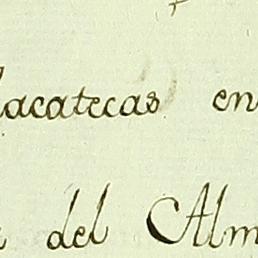 lacatecas en
del Alm